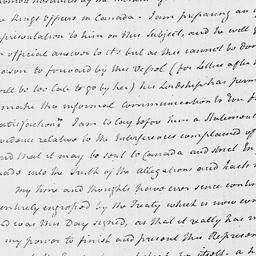 the Kings Officers in Canada. I am preparing an
representation to him on this Subject, and he will
official answer to it; but as this cannot be don
soon to forward by this Vessel (for Letters after
will be too late to go by her) his Lordship has perm
make this informal communication to you
satisfaction. I am to lay before him a Statement
vidence relative to the Interferences complained of
and that it may be sent to Canada and strict In
made into the Truth of the allegations and facts
My time and thoughts have ever since contin
entirely engrossed by the Treaty which is now con
and was this Day signed, so that it really has n
my power to finish and present this Represen
itself - a